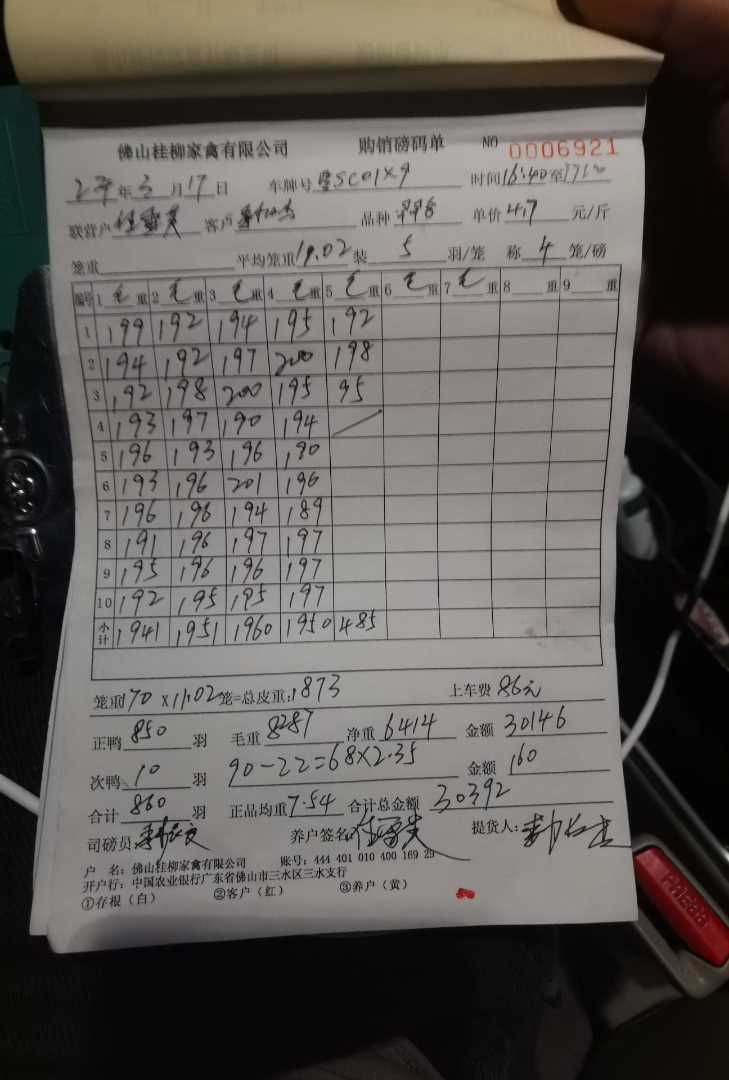 佛山桂柳家禽有限公司 购销磅码单 NO 0006921
年 3 月 17 日 车牌号 时间 16:40 至
联营户 客户 品种 单价 4.7 元/斤
笼重 平均笼重 11.02 装 5 羽/笼 称 4 笼/磅
编号 1 毛 重 2 毛 重 3 毛 重 4 毛 重 5 毛 重 6 毛 重 7 毛 重 8 重 9 重
1 199 192 194 195 192
2 194 192 197 200 198
3 192 198 200 195 95
4 193 197 190 194
5 196 193 196 190
6 193 196 201 196
7 196 196 194 189
8 191 196 197 197
9 195 196 196 197
10 192 195 195 197
小计 1941 1951 1960 1950 485
笼重 170 x 11.02 笼=总皮重: 1873 上车费 86元
正鸭 850 羽 毛重 8287 净重 6414 金额 30146
次鸭 10 羽 90-22=68×2.35 金额 160
合计 860 羽 正品均重 7.54 合计总金额 30392
司磅员 养户签名 提货人:
户 名: 佛山桂柳家禽有限公司 账号: 444 401 010 400 169 29
开户行: 中国农业银行广东省佛山市三水区三水支行
①存根(白) ②客户(红) ③养户(黄)
PRESS